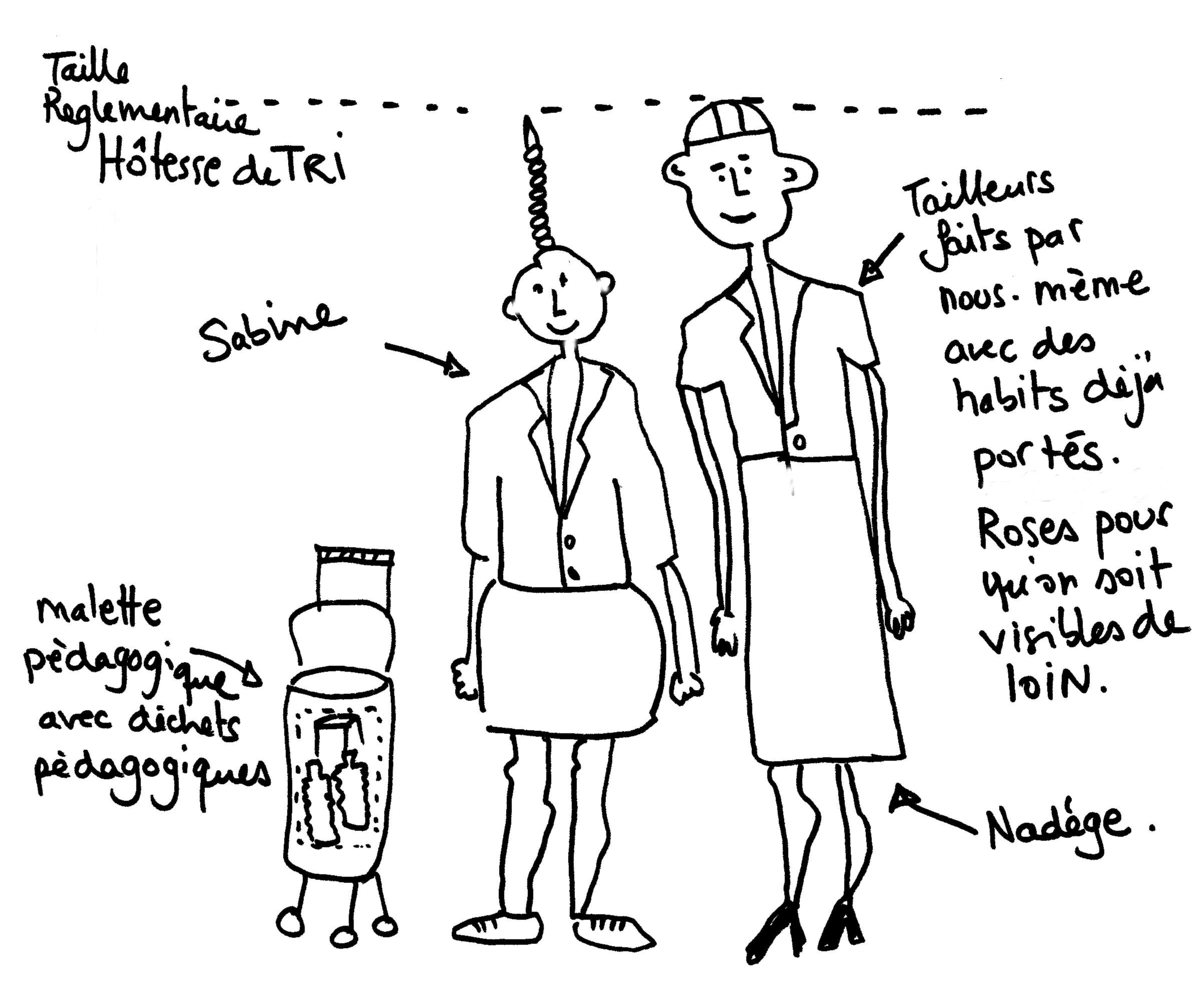 Taille
Reglementaire
Hôtesse de TRi
Sabine
malette
pèdagogique
avec dèchets
pèdagogiques
Tailleurs
faits par
nous-même
avec des
habits déjà
portés.
Roses pour
qu'on soit
visibles de
loin.
Nadége.